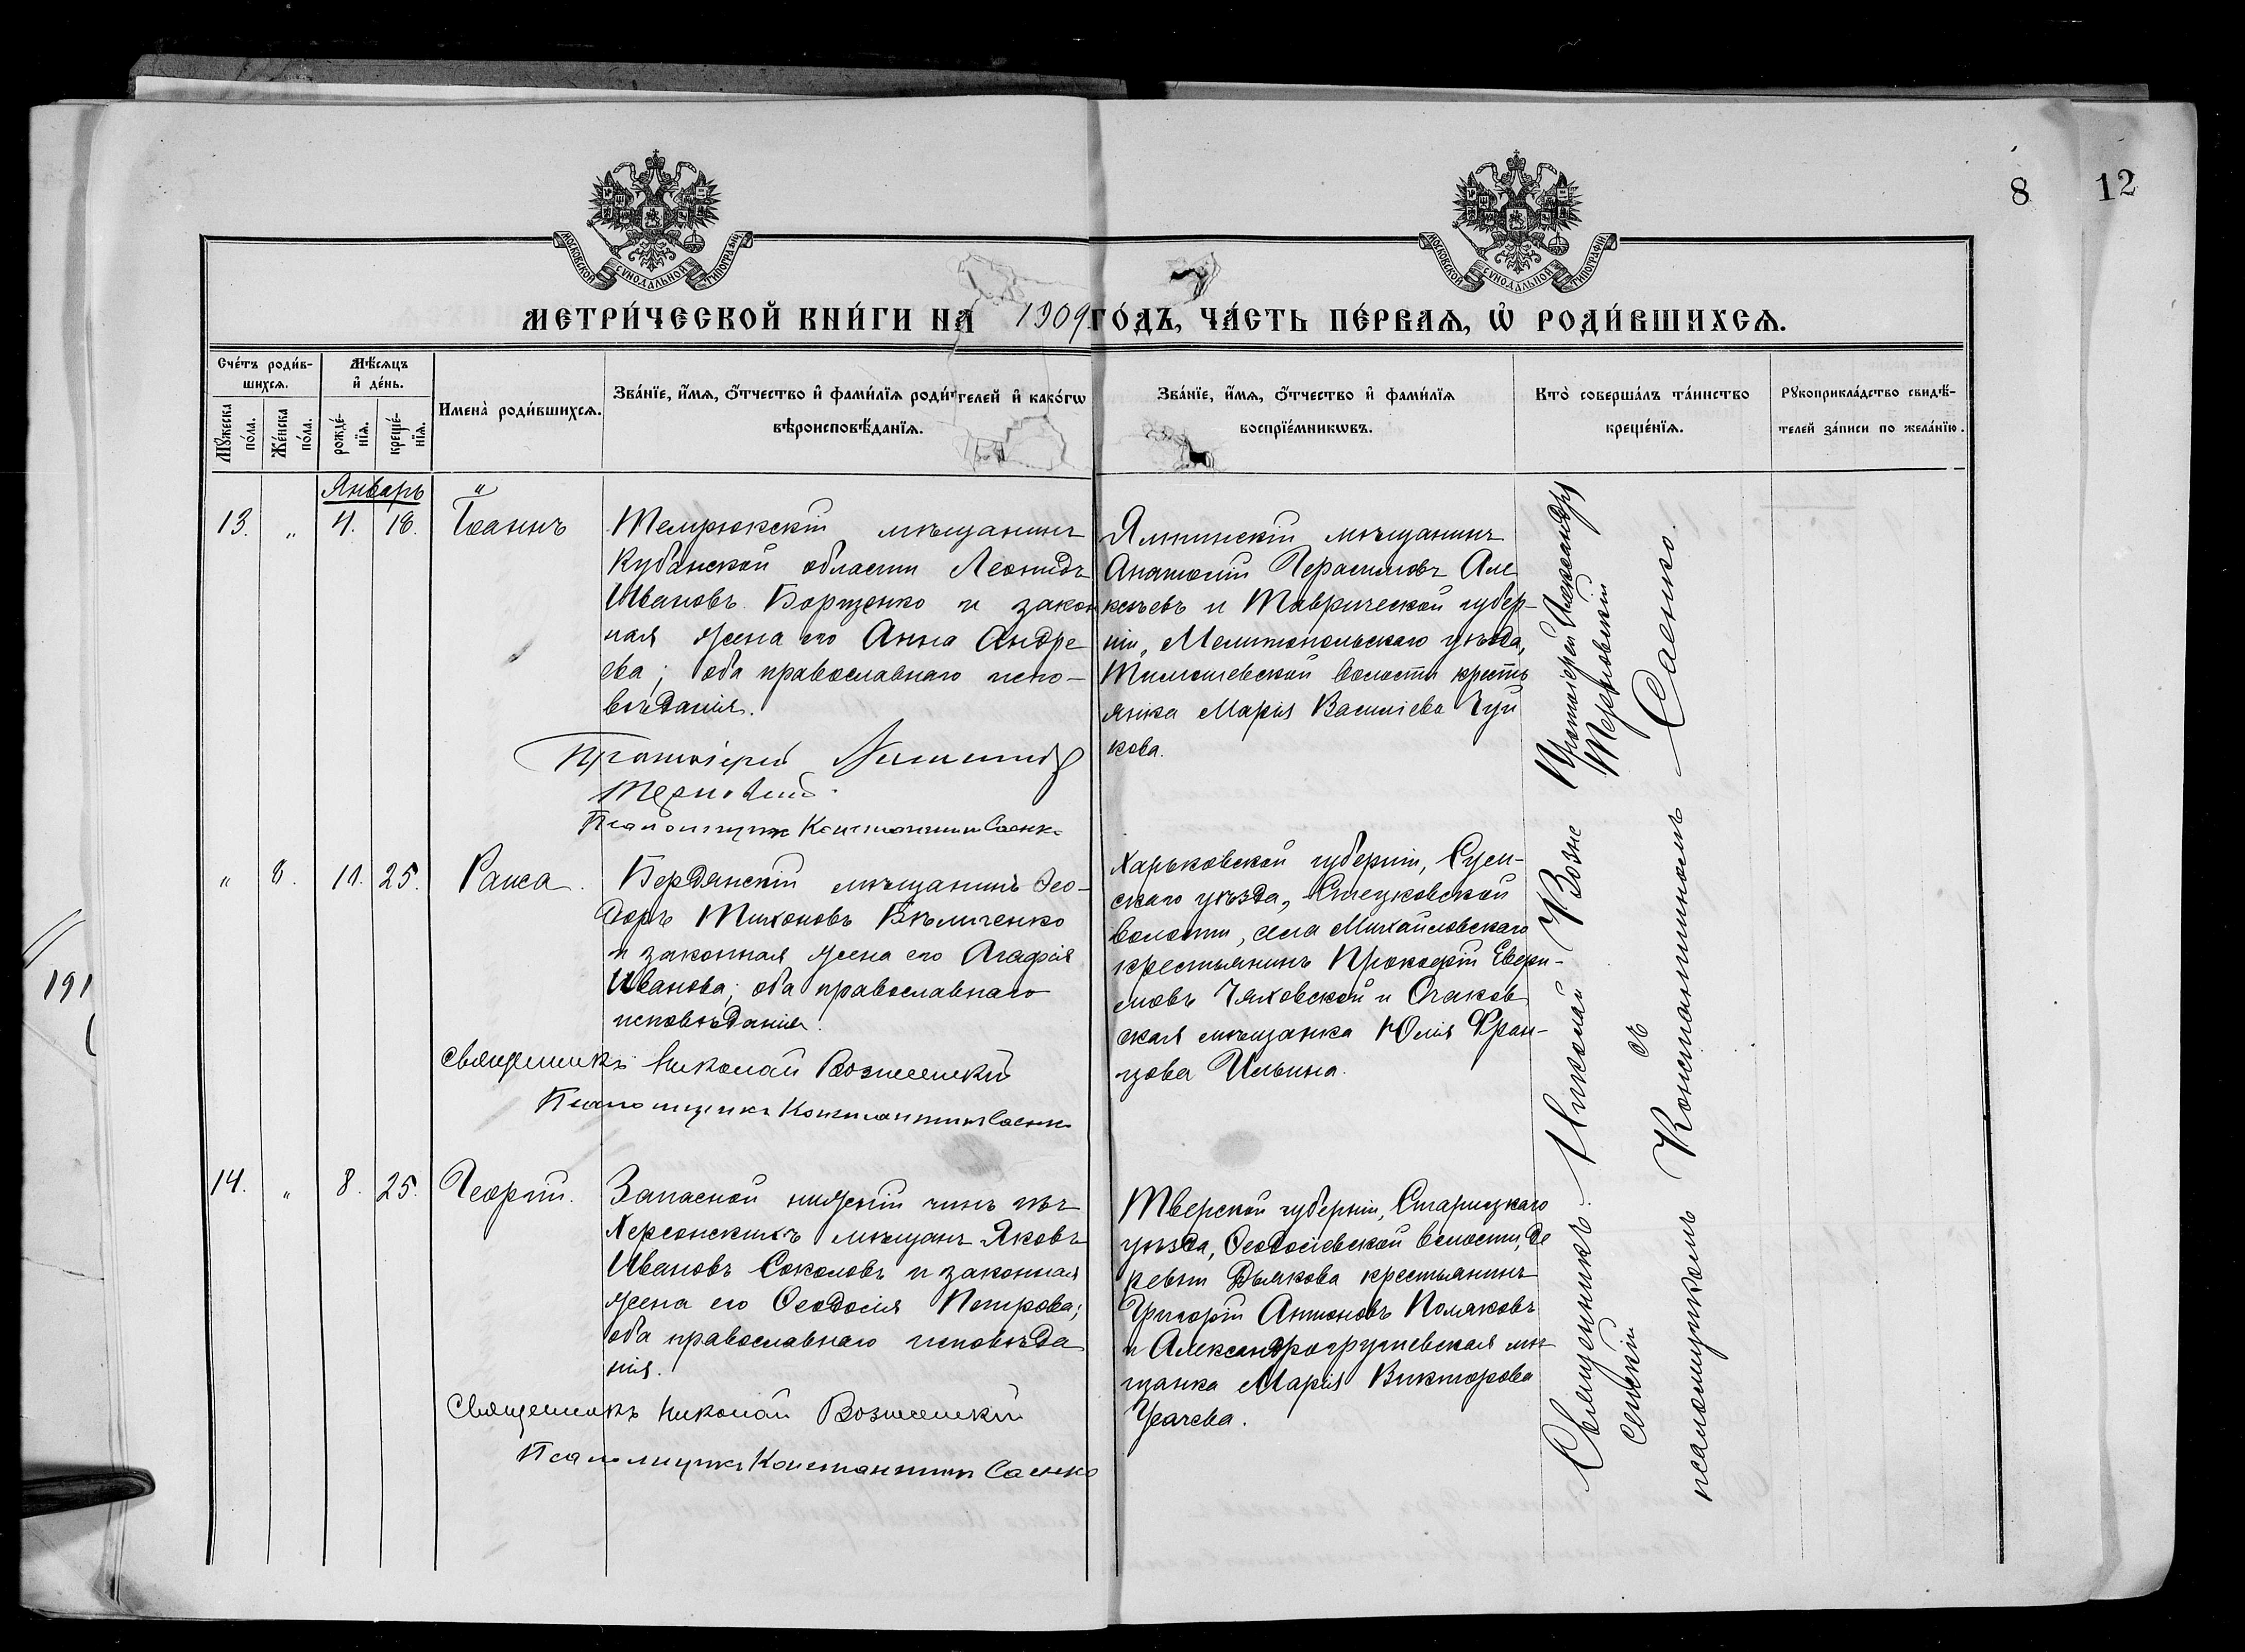 8 12
МОСКОВСКОЙ СѴНОДАЛЬНОЙ ТИПОГРАФІИ
МОСКОВСКОЙ СѴНОДАЛЬНОЙ ТИПОГРАФІИ
МЕТРИ́ЧЕСКОЙ КНИ́ГИ НА 1909 ГО́ДЪ, ЧА́СТЬ ПЕ́РВАЯ, Ѡ҆ РОДИ́ВШИХСЯ.
Сче́тъ роди́в-
шихся.
Мѣ́сяцъ
и҆ де́нь.
Мꙋ́жеска по́ла.
Же́нска по́ла.
рожде́-
нїя.
креще́-
нїя.
Имена̀ роди́вшихся.
Зва́нїе, и҆́мя, ѻ҆́тчество и҆ фами́лїя роди́телей и҆ како́гѡ
вѣроисповѣ́данїя.
Зва́нїе, и҆́мя, ѻ҆́тчество и҆ фами́лїя
воспрїе́мникѡвъ.
Кто̀ соверша́лъ та́инство
креще́нїя.
Рꙋкоприкла́дство свидѣ́-
телей за́писи по жела́нїю.
Январь "
13. " 4. 18. Іоаннъ
Темрюкскій мѣщанинъ
Кубанской области Леонидъ
Ивановъ Борщенко и закон
ная жена его Анна Андре
ева; оба православнаго испо-
вѣданія.
Протоіерей Александръ
Терновскій
Псаломщикъ Константинъ Саенко
Ялтинскій мѣщанинъ
Анатолій Герасимовъ Але
ксѣевъ и Таврической губер-
ніи, Мелитопольскаго уѣзда,
Тимошевской волости кресть
янка Марія Васильева Чуй
кова.
Протоіерей Александръ
Терновскій
" 8. 11. 25. Раиса.
Бердянскій мѣщанинъ Ѳео-
доръ Тихоновъ Бѣличенко
и законная жена его Агафія
Иванова; оба православнаго
исповѣданія.
Священникъ Николай Вознесенскій
Псаломщикъ Константинъ Саенко
Харьковской губерніи, Сум-
скаго уѣзда, Стецковской
волости, села Михайловскаго
крестьянинъ Прокофій Евфи-
мовъ Чяховской и Очаков
ская мѣщанка Юлія Фран-
цова Ильина.
14. " 8. 25. Георгій.
Запасной нижній чинъ изъ
Херсонскихъ мѣщанъ Яковъ
Ивановъ Соколовъ и законная
жена его Ѳеодосія Петрова;
оба православнаго исповѣда
нія.
Священникъ Николай Вознесенскій
Псаломщикъ Константинъ Саенко
Тверской губерніи, Старицкаго
уѣзда, Ѳеодосіевской волости, де
ревни Дьякова крестьянинъ
Григорій Антоновъ Поляковъ
и Александрогрушевская мѣ
щанка Марія Викторова
Усачева.
Священникъ Николай Возне
сенскій съ
псаломщикомъ Константиномъ Саенко.
191